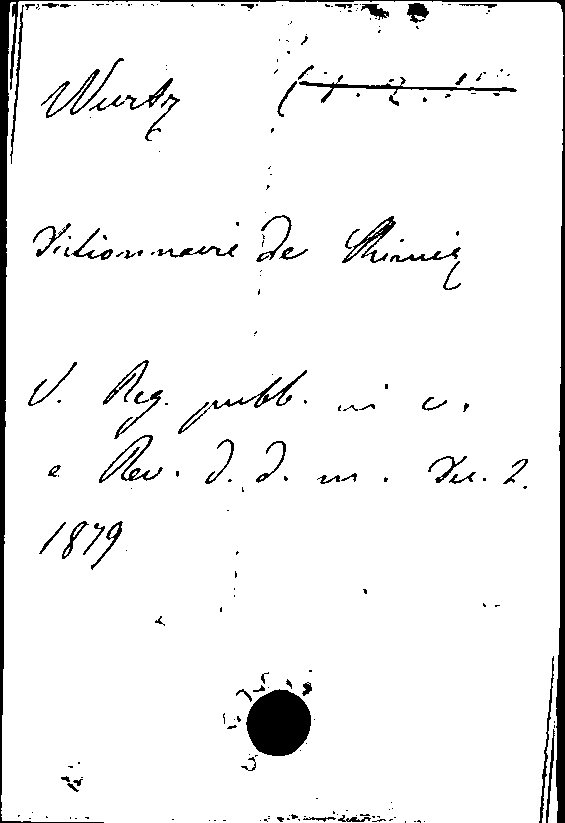 Wurtz
Dictionnaire de Chimie
V. Reg. pubb. in c.
e Rev. d. d. m. Dec. 2.
1879